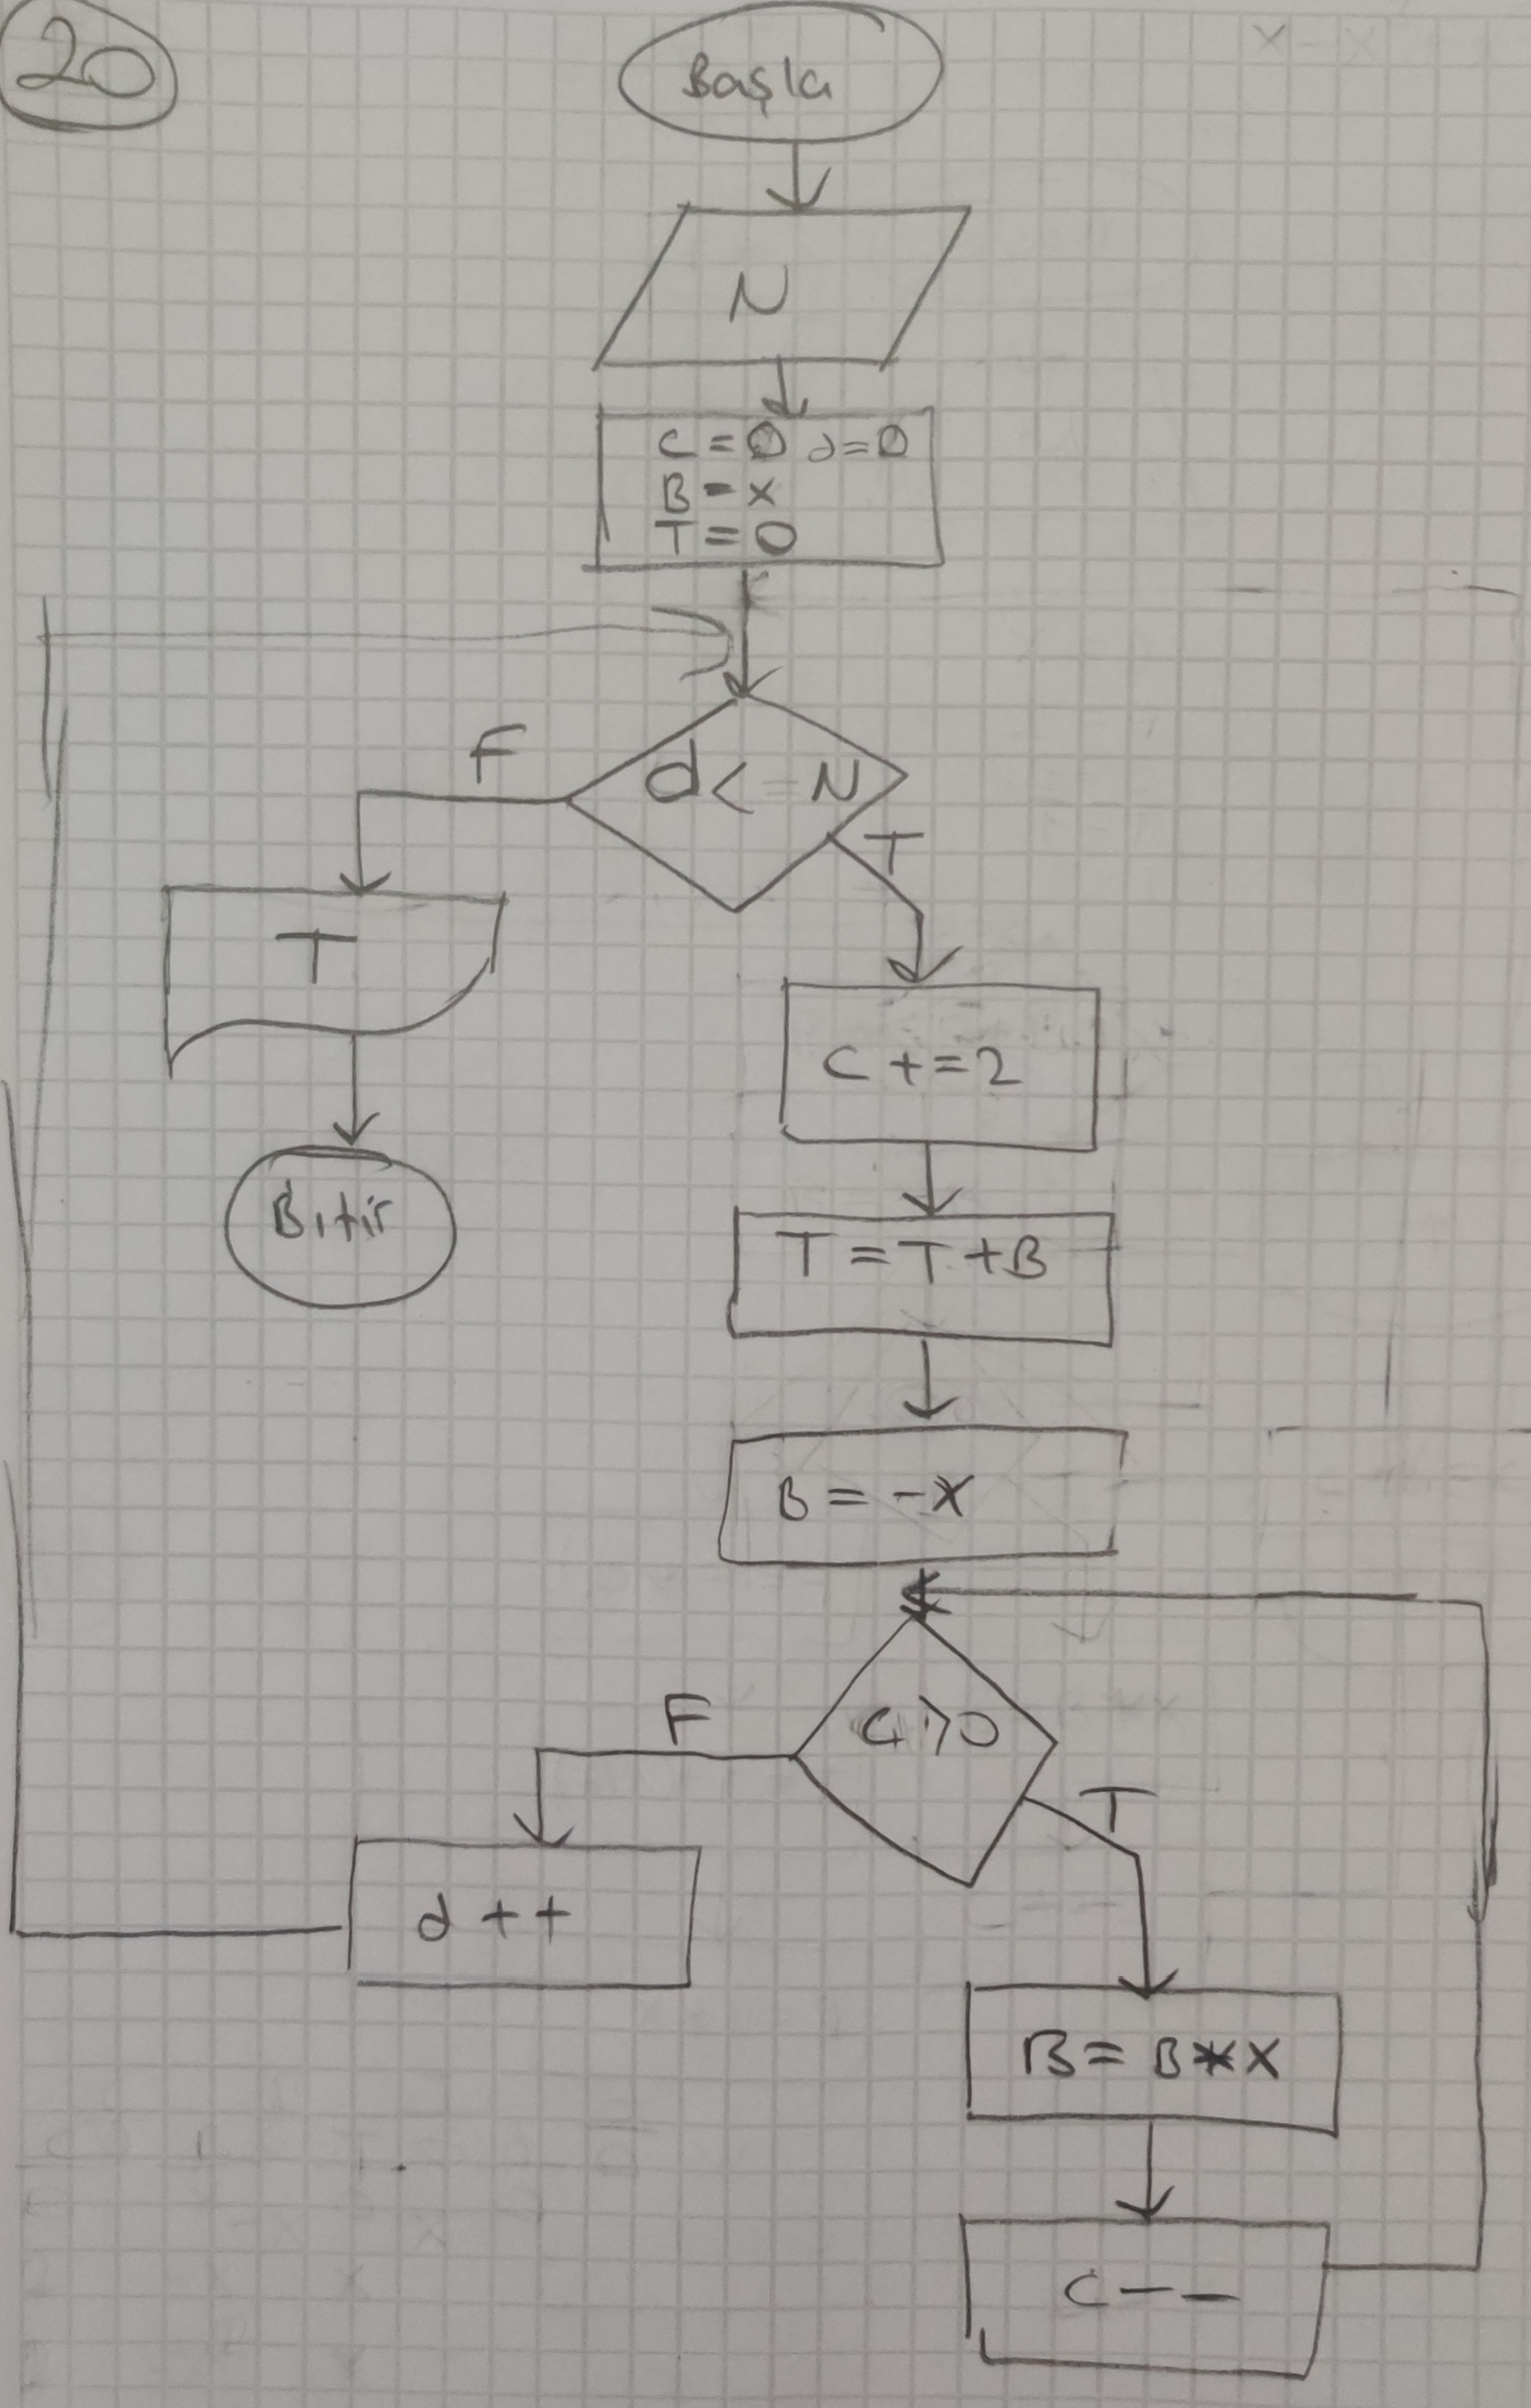 20
Başla
N
C = 0 d = 0
B = x
T = 0
d < = N
F
T
T
C += 2
Bitir
T = T + B
B = -x
C > 0
F
T
d ++
B = B * x
C --